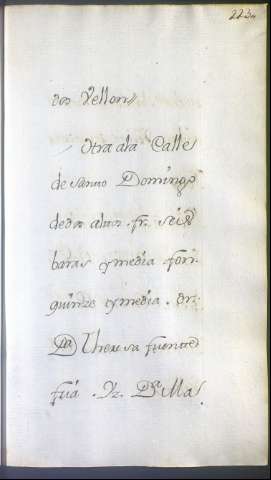 223
dos Vellon//
Otra ala Calle
de santo Domingo
de dos altos. fr. seis
baras y media fon.
quinze y media. Dr.
Dª Theresa fuente
fria. Yz. Dª Ma